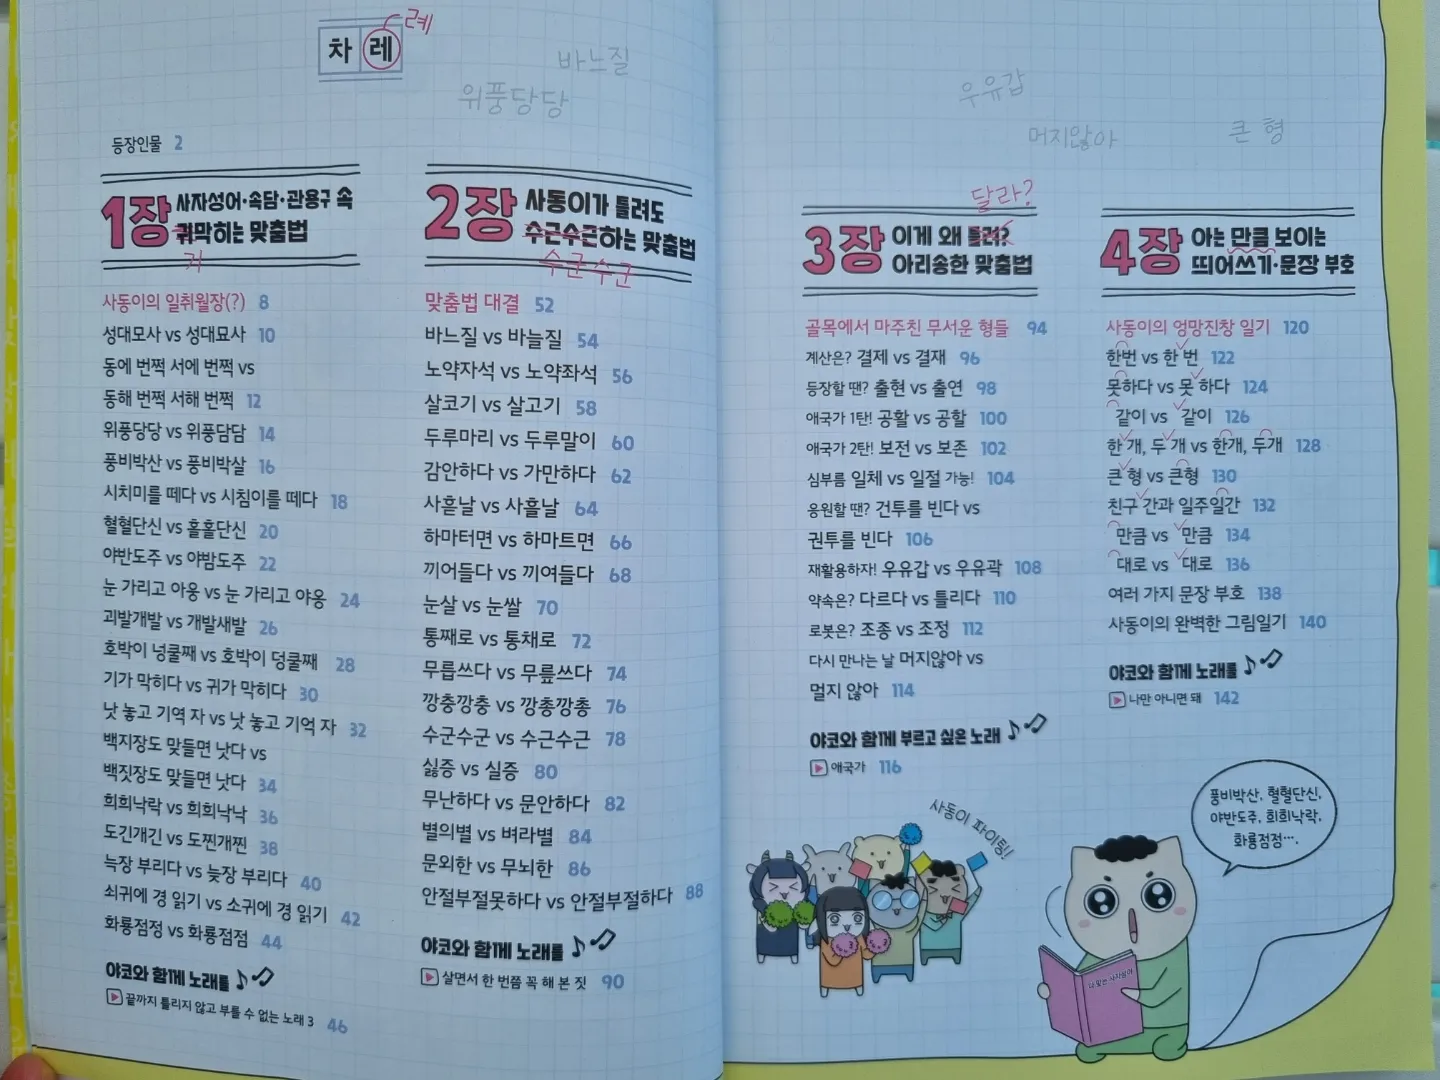 차레
례
바느질
위풍당당
우유갑
머지않아
큰 형
등장인물 2
1장 사자성어·속담·관용구 속
귀막히는 맞춤법
기
사동이의 일취월장(?) 8
성대모사 vs 성대묘사 10
동에 번쩍 서에 번쩍 vs
동해 번쩍 서해 번쩍 12
위풍당당 vs 위풍담담 14
풍비박산 vs 풍비박살 16
시치미를 떼다 vs 시침이를 떼다 18
혈혈단신 vs 홀홀단신 20
야반도주 vs 야밤도주 22
눈 가리고 아웅 vs 눈 가리고 야옹 24
괴발개발 vs 개발새발 26
호박이 넝쿨째 vs 호박이 덩쿨째 28
기가 막히다 vs 귀가 막히다 30
낫 놓고 기역 자 vs 낫 놓고 기억 자 32
백지장도 맞들면 낫다 vs
백짓장도 맞들면 낫다 34
희희낙락 vs 희희낙낙 36
도긴개긴 vs 도찐개찐 38
늑장 부리다 vs 늦장 부리다 40
쇠귀에 경 읽기 vs 소귀에 경 읽기 42
화룡점정 vs 화룡점점 44
야코와 함께 노래를
끝까지 틀리지 않고 부를 수 없는 노래 3 46
2장 사동이가 틀려도
수근수근하는 맞춤법
수군수군
맞춤법 대결 52
바느질 vs 바늘질 54
노약자석 vs 노약좌석 56
살코기 vs 살고기 58
두루마리 vs 두루말이 60
감안하다 vs 가만하다 62
사흗날 vs 사흘날 64
하마터면 vs 하마트면 66
끼어들다 vs 끼여들다 68
눈살 vs 눈쌀 70
통째로 vs 통채로 72
무릅쓰다 vs 무릎쓰다 74
깡충깡충 vs 깡총깡총 76
수군수군 vs 수근수근 78
싫증 vs 실증 80
무난하다 vs 문안하다 82
별의별 vs 벼라별 84
문외한 vs 무뇌한 86
안절부절못하다 vs 안절부절하다 88
야코와 함께 노래를
살면서 한 번쯤 꼭 해 본 짓 90
달라?
3장 이게 왜 틀려?
아리송한 맞춤법
골목에서 마주친 무서운 형들 94
계산은? 결제 vs 결재 96
등장할 땐? 출현 vs 출연 98
애국가 1탄! 공활 vs 공할 100
애국가 2탄! 보전 vs 보존 102
심부름 일체 vs 일절 가능! 104
응원할 땐? 건투를 빈다 vs
권투를 빈다 106
재활용하자! 우유갑 vs 우유곽 108
약속은? 다르다 vs 틀리다 110
로봇은? 조종 vs 조정 112
다시 만나는 날 머지않아 vs
멀지 않아 114
야코와 함께 부르고 싶은 노래
애국가 116
4장 아는 만큼 보이는
띄어쓰기·문장 부호
사동이의 엉망진창 일기 120
한번 vs 한 번 122
못하다 vs 못 하다 124
같이 vs 같이 126
한 개, 두 개 vs 한개, 두개 128
큰 형 vs 큰형 130
친구 간과 일주일간 132
만큼 vs 만큼 134
대로 vs 대로 136
여러 가지 문장 부호 138
사동이의 완벽한 그림일기 140
야코와 함께 노래를
나만 아니면 돼 142
사동이 파이팅!
풍비박산, 혈혈단신,
야반도주, 희희낙락,
화룡점정….